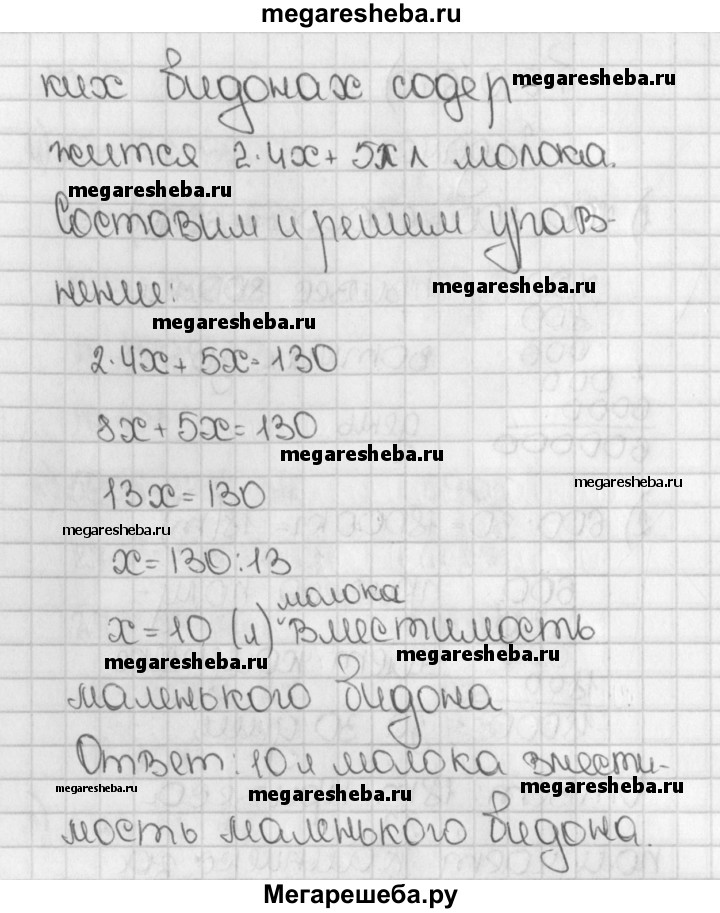 megaresheba.ru
ких бидонах содер-
megaresheba.ru
жится 2·4x + 5x л молока.
megaresheba.ru
Составим и решим урав-
нение:
megaresheba.ru
megaresheba.ru
2·4x + 5x = 130
8x + 5x = 130
megaresheba.ru
13x = 130
megaresheba.ru
megaresheba.ru
x = 130 : 13
молока
x = 10 (л) вместимость
megaresheba.ru
megaresheba.ru
маленького бидона
Ответ: 10 л молока вмести-
megaresheba.ru
megaresheba.ru
megaresheba.ru
мость маленького бидона.
Мегарешеба.ру